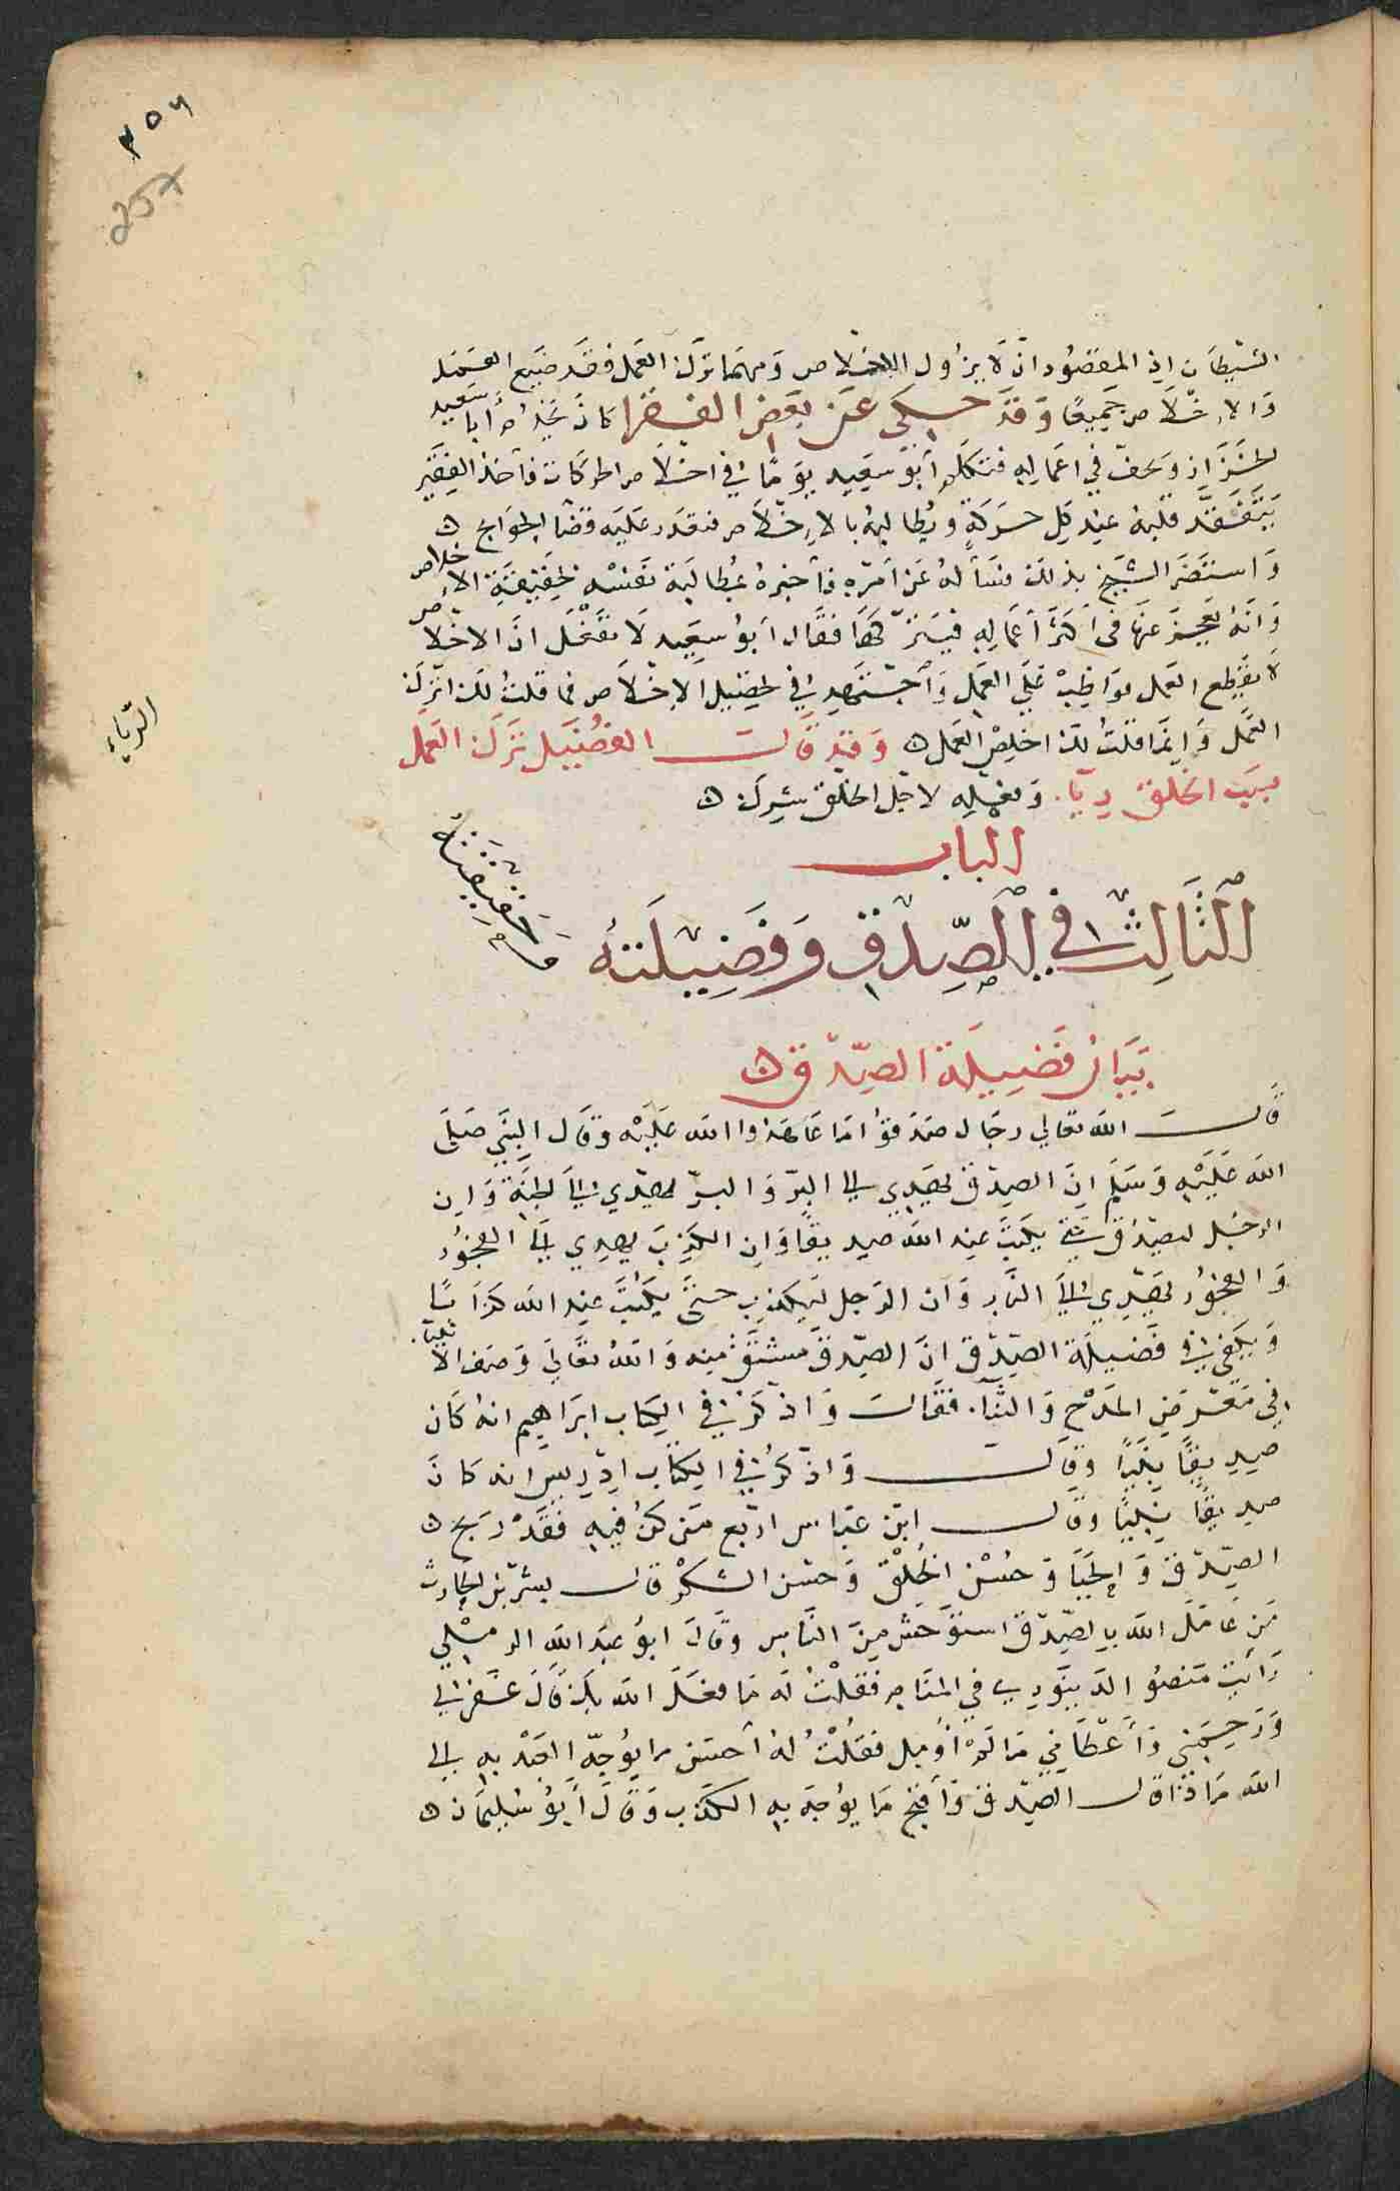 ٢٥٦
257
الشيطان اذ المقصود ان لا يزول الاخلاص ومهما ترك العمل فقد ضيع العمل
والاخلاص جميعا وقد حكى عن بعض الفقرا كان يخدم ابا سعيد
الخزاز ويخف في اعماله فتكلم ابو سعيد يوما في اخلاص الحركات فاخذ الفقير
يتفقد قلبه عند كل حركة ويطالبه بالاخلاص فتعذر عليه قضا الحوايج ه
واستضر الشيخ بذلك فسأله عن امره فاخبره بمطالبة نفسه بحقيقة الاخلاص
وانه يعجز عنها في اكثر اعماله فيتركها فقال ابو سعيد لا تفعل ان الاخلاص
لا يقطع العمل فواظب على العمل واجتهد في تحصيل الاخلاص فما قلت لك اترك
العمل وانما قلت لك اخلص العمل ه وقد قال الفضيل ترك العمل
بسبب الخلق ريا. وفعله لاجل الخلق شرك ه
الرياء
الباب
الثالث في الصدق وفضيلته
وحقيقته
بيان فضيلة الصدق ه
قال الله تعالى رجال صدقوا ما عاهدوا الله عليه وقال النبي صلى
الله عليه وسلم ان الصدق يهدي الى البر والبر يهدي الى الجنة وان
الرجل ليصدق حتى يكتب عند الله صديقا وان الكذب يهدي الى الفجور
والفجور يهدي الى النار وان الرجل ليكذب حتى يكتب عند الله كذابا
ويكفي في فضيلة الصدق ان الصديق مشتق منه والله تعالى وصف الانبيا.
في معرض المدح والثنا. فقال واذكر في الكتاب ابراهيم انه كان
صديقا نبيا وقال واذكر في الكتاب ادريس انه كان
صديقا نبيا وقال ابن عباس اربع من كن فيه فقد ربح ه
الصدق والحيا وحسن الخلق وحسن الشكر قال بشر بن الحارث
من عامل الله بالصدق استوحش من الناس وقال ابو عبد الله الرملي
رأيت منصو الدينوري في المنام فقلت له ما فعل الله بك قال غفر لي
ورحمني واعطاني ما لم اؤمل فقلت له احسن ما يوجه العبد به الى
الله ماذا قال الصدق واقبح ما يوجه به الكذب وقال ابو سليمان ه